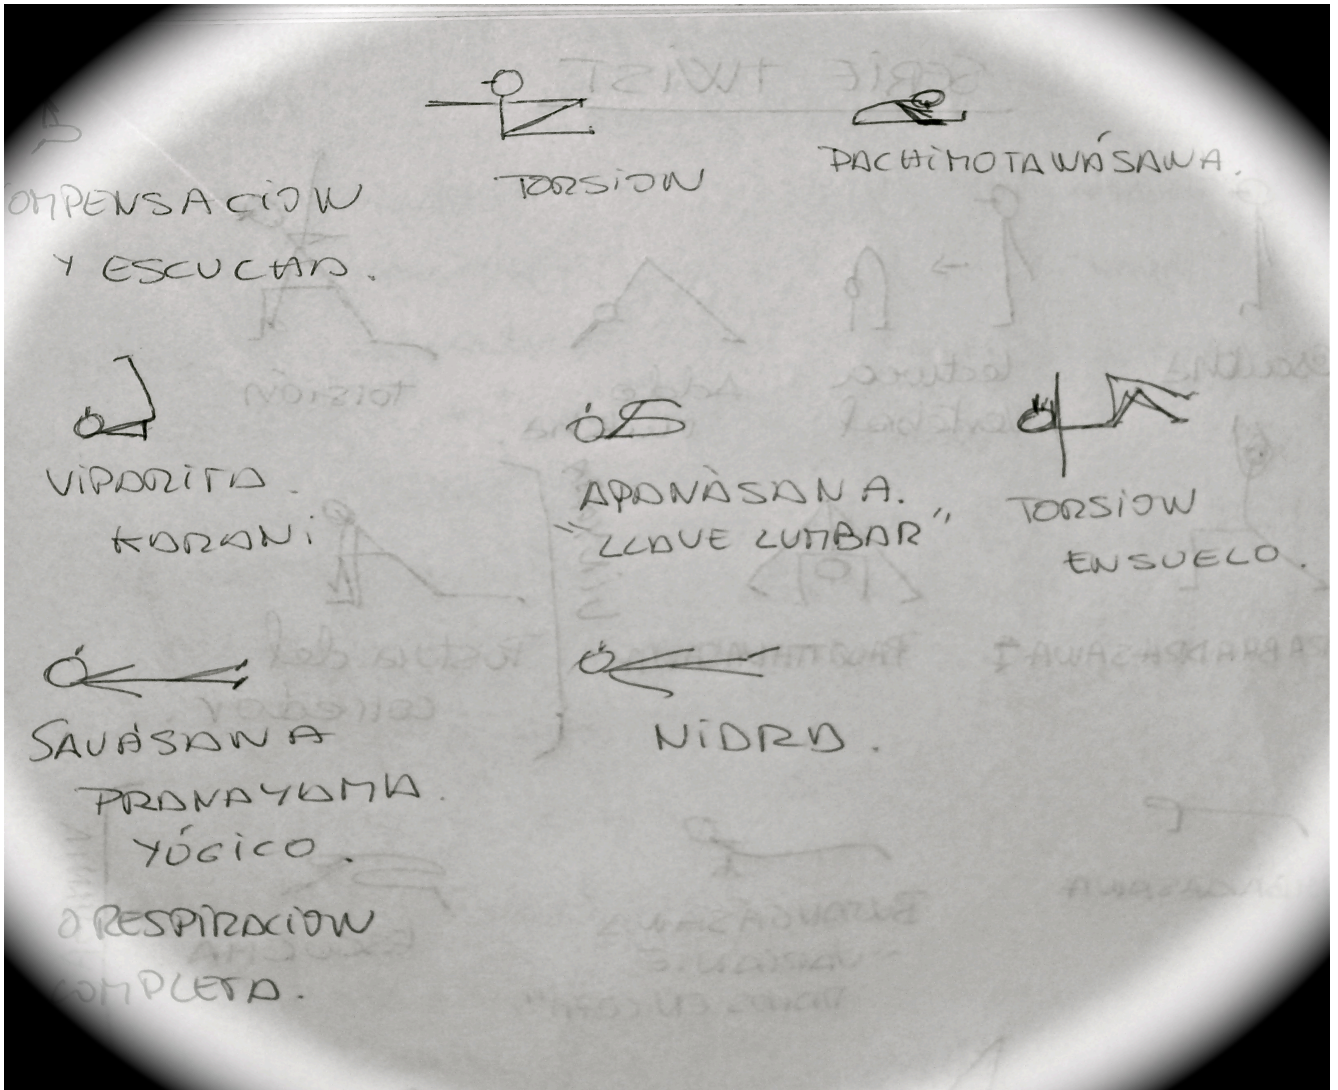 COMPENSACION
Y ESCUCHA.
TORSION
PACHIMOTANÁSANA.
VIPARITA
KARANI
APANÀSANA.
"LLAVE LUMBAR"
TORSION
EN SUELO.
SAVÁSANA
PRANAYAMA.
YÓGICO.
O RESPIRACION
COMPLETA.
NIDRA.